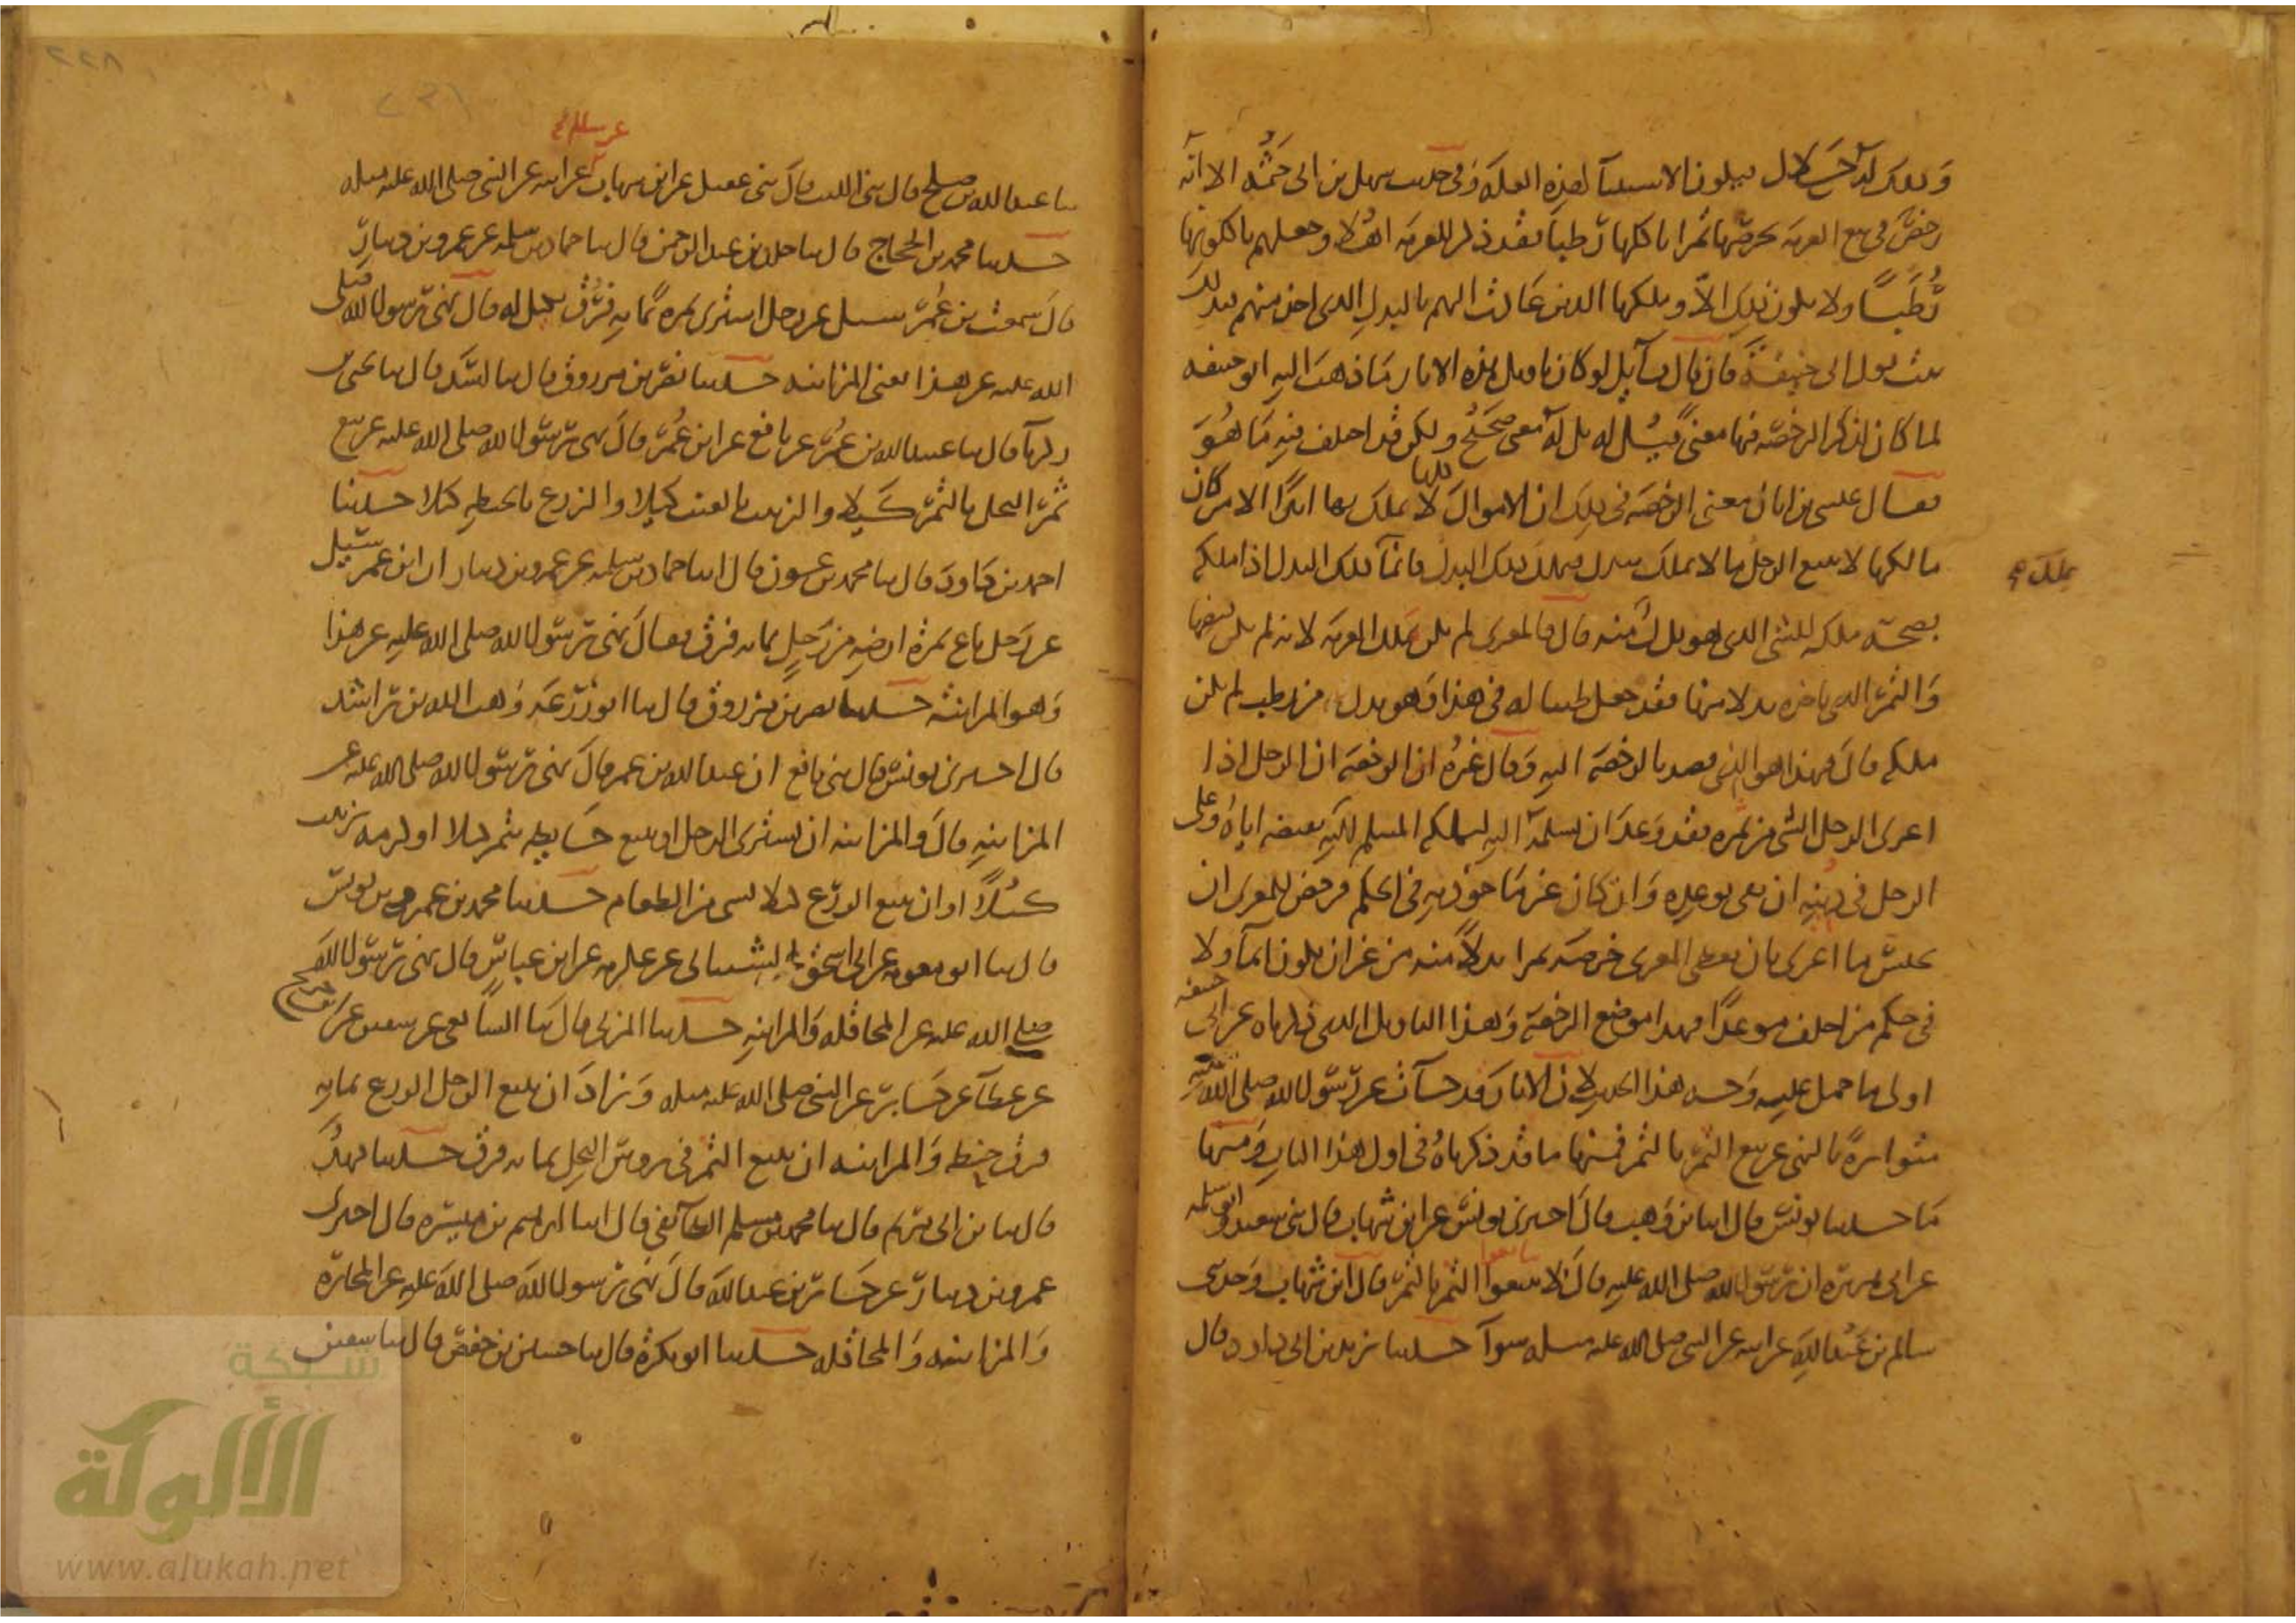 وذلك كله حلال فيكون الاستثناء لهذه العلة وفي حديث سهل بن ابي حثمة الا انه
رخص في بيع العرية بخرصها تمرا ياكلها رطبا فقد ذكر للعرية اهلا وجعلهم ياكلونها
رطبا ولا يكون ذلك الا وملكها الذين عادت اليهم بالبدل الذي اخذ منهم فبذلك
يثبت قول ابي حنيفة فان قال قائل لو كان تاويل هذه الاثار ما ذهب اليه ابو حنيفة
لما كان لذكر الرخصة فيها معنى قيل له بل له معنى صحيح ولكن قد اختلف فيه ما هو
فقال عيسى بن ابان معنى الرخصة في ذلك ان الاموال كلها لا يملك بها ابدالا الا من كان
مالكها لا يبيع الرجل ما لا يملك ببدل فيملك ذلك البدل وانما يملك البدل اذا ملكه
يملك
بصحة ملكه للشيء الذي هو بدل منه قال فالمعرى لم يكن ملك العرية لانه لم يكن قبضها
والتمر الذي ياخذه بدلا منها فقد جعل طيبا له في هذا وهو بدل من رطب لم يكن
ملكه قال فهذا هو الذي قصد بالرخصة اليه وقال غيره ان الرخصة ان الرجل اذا
اعرى الرجل الشيء من ثمره فقد وعد ان يسلمه اليه ليملكه المسلم اليه بقبضه اياه وعلى
الرجل في دينه ان يفي بوعده وان كان غير ماخوذ به في الحكم فرخص للمعري ان
يحتبس ما اعرى بان يعطي المعرى خرصه تمرا بدلا منه من غير ان يكون اثما ولا
في حكم من اخلف موعدا فهذا موضع الرخصة وهذا التاويل الذي ذكرناه عن ابي حنيفة
اولى ما حمل عليه وجه هذا الحديث لان الاثار قد جاءت عن رسول الله صلى الله عليه
متواترة بالنهي عن بيع الثمر بالتمر فمنها ما قد ذكرناه في اول هذا الباب ومنها
ما حدثنا يونس قال انا ابن وهب قال اخبرني يونس عن ابن شهاب قال ثني سعيد وابو سلمة
عن ابي هريرة ان رسول الله صلى الله عليه قال لا تبيعوا الثمر بالتمر قال ابن شهاب وحدثني
تبايعوا
سالم بن عبد الله عن ابيه عن النبي صلى الله عليه وسلم سواء حدثنا يزيد بن ابي داود قال
ثنا عبد الله بن صالح قال ثني الليث قال ثني عقيل عن ابن شهاب عن ابيه عن النبي صلى الله عليه وسلم
عن سالم
حدثنا محمد بن الحجاج قال ثنا خلد بن عبد الرحمن قال ثنا حماد بن سلمة عن عمرو بن دينار
قال سمعت بن عمر سئل عن رجل اشترى ثمرة بماية فرق بكيل له قال نهى رسول الله صلى
الله عليه عن هذا يعني المزابنة حدثنا نصر بن مرزوق قال ثنا اسد قال ثنا يحيى بن
زكريا قال ثنا عبيد الله بن عمر عن نافع عن ابن عمر قال نهى رسول الله صلى الله عليه عن بيع
ثمر النخل بالتمر كيلا والزبيب بالعنب كيلا والزرع بالحنطة كيلا حدثنا
احمد بن داود قال ثنا محمد بن عون قال انا حماد بن سلمة عن عمرو بن دينار ان ابن عمر سئل
عن رجل باع ثمرة ارضه من رجل بماية فرق فقال نهى رسول الله صلى الله عليه عن هذا
وهو المزابنة حدثنا نصر بن مرزوق قال ثنا ابو زرعة وهب الله بن راشد
قال اخبرني يونس قال ثني نافع ان عبد الله بن عمر قال نهى رسول الله صلى الله عليه عن
المزابنة قال والمزابنة ان يشتري الرجل او يبيع حايطه بتمر كيلا او كرمه بزبيب
كيلا او ان يبيع الزرع كيلا بشيء من الطعام حدثنا محمد بن عمرو بن يونس
قال ثنا ابو معوية عن ابي اسحق الشيباني عن عكرمة عن ابن عباس قال نهى رسول الله
صلى الله عليه عن المحاقلة والمزابنة حدثنا المزني قال ثنا الشافعي عن سفين عن بن جريج
عن عطاء عن جابر عن النبي صلى الله عليه مثله وزاد ان يبيع الرجل الزرع بماية
فرق حنطة والمزابنة ان يبيع الثمر في رؤس النخل بماية فرق حدثنا فهد
قال ثنا بن ابي مريم قال ثنا محمد بن مسلم الطائفي قال انا ابرهيم بن ميسرة قال اخبرني
عمرو بن دينار عن جابر بن عبد الله قال نهى رسول الله صلى الله عليه عن المخابرة
والمزابنة والمحاقلة حدثنا ابو بكرة قال ثنا حسين بن حفص قال ثنا سفين
شبكة
الألوكة
www.alukah.net